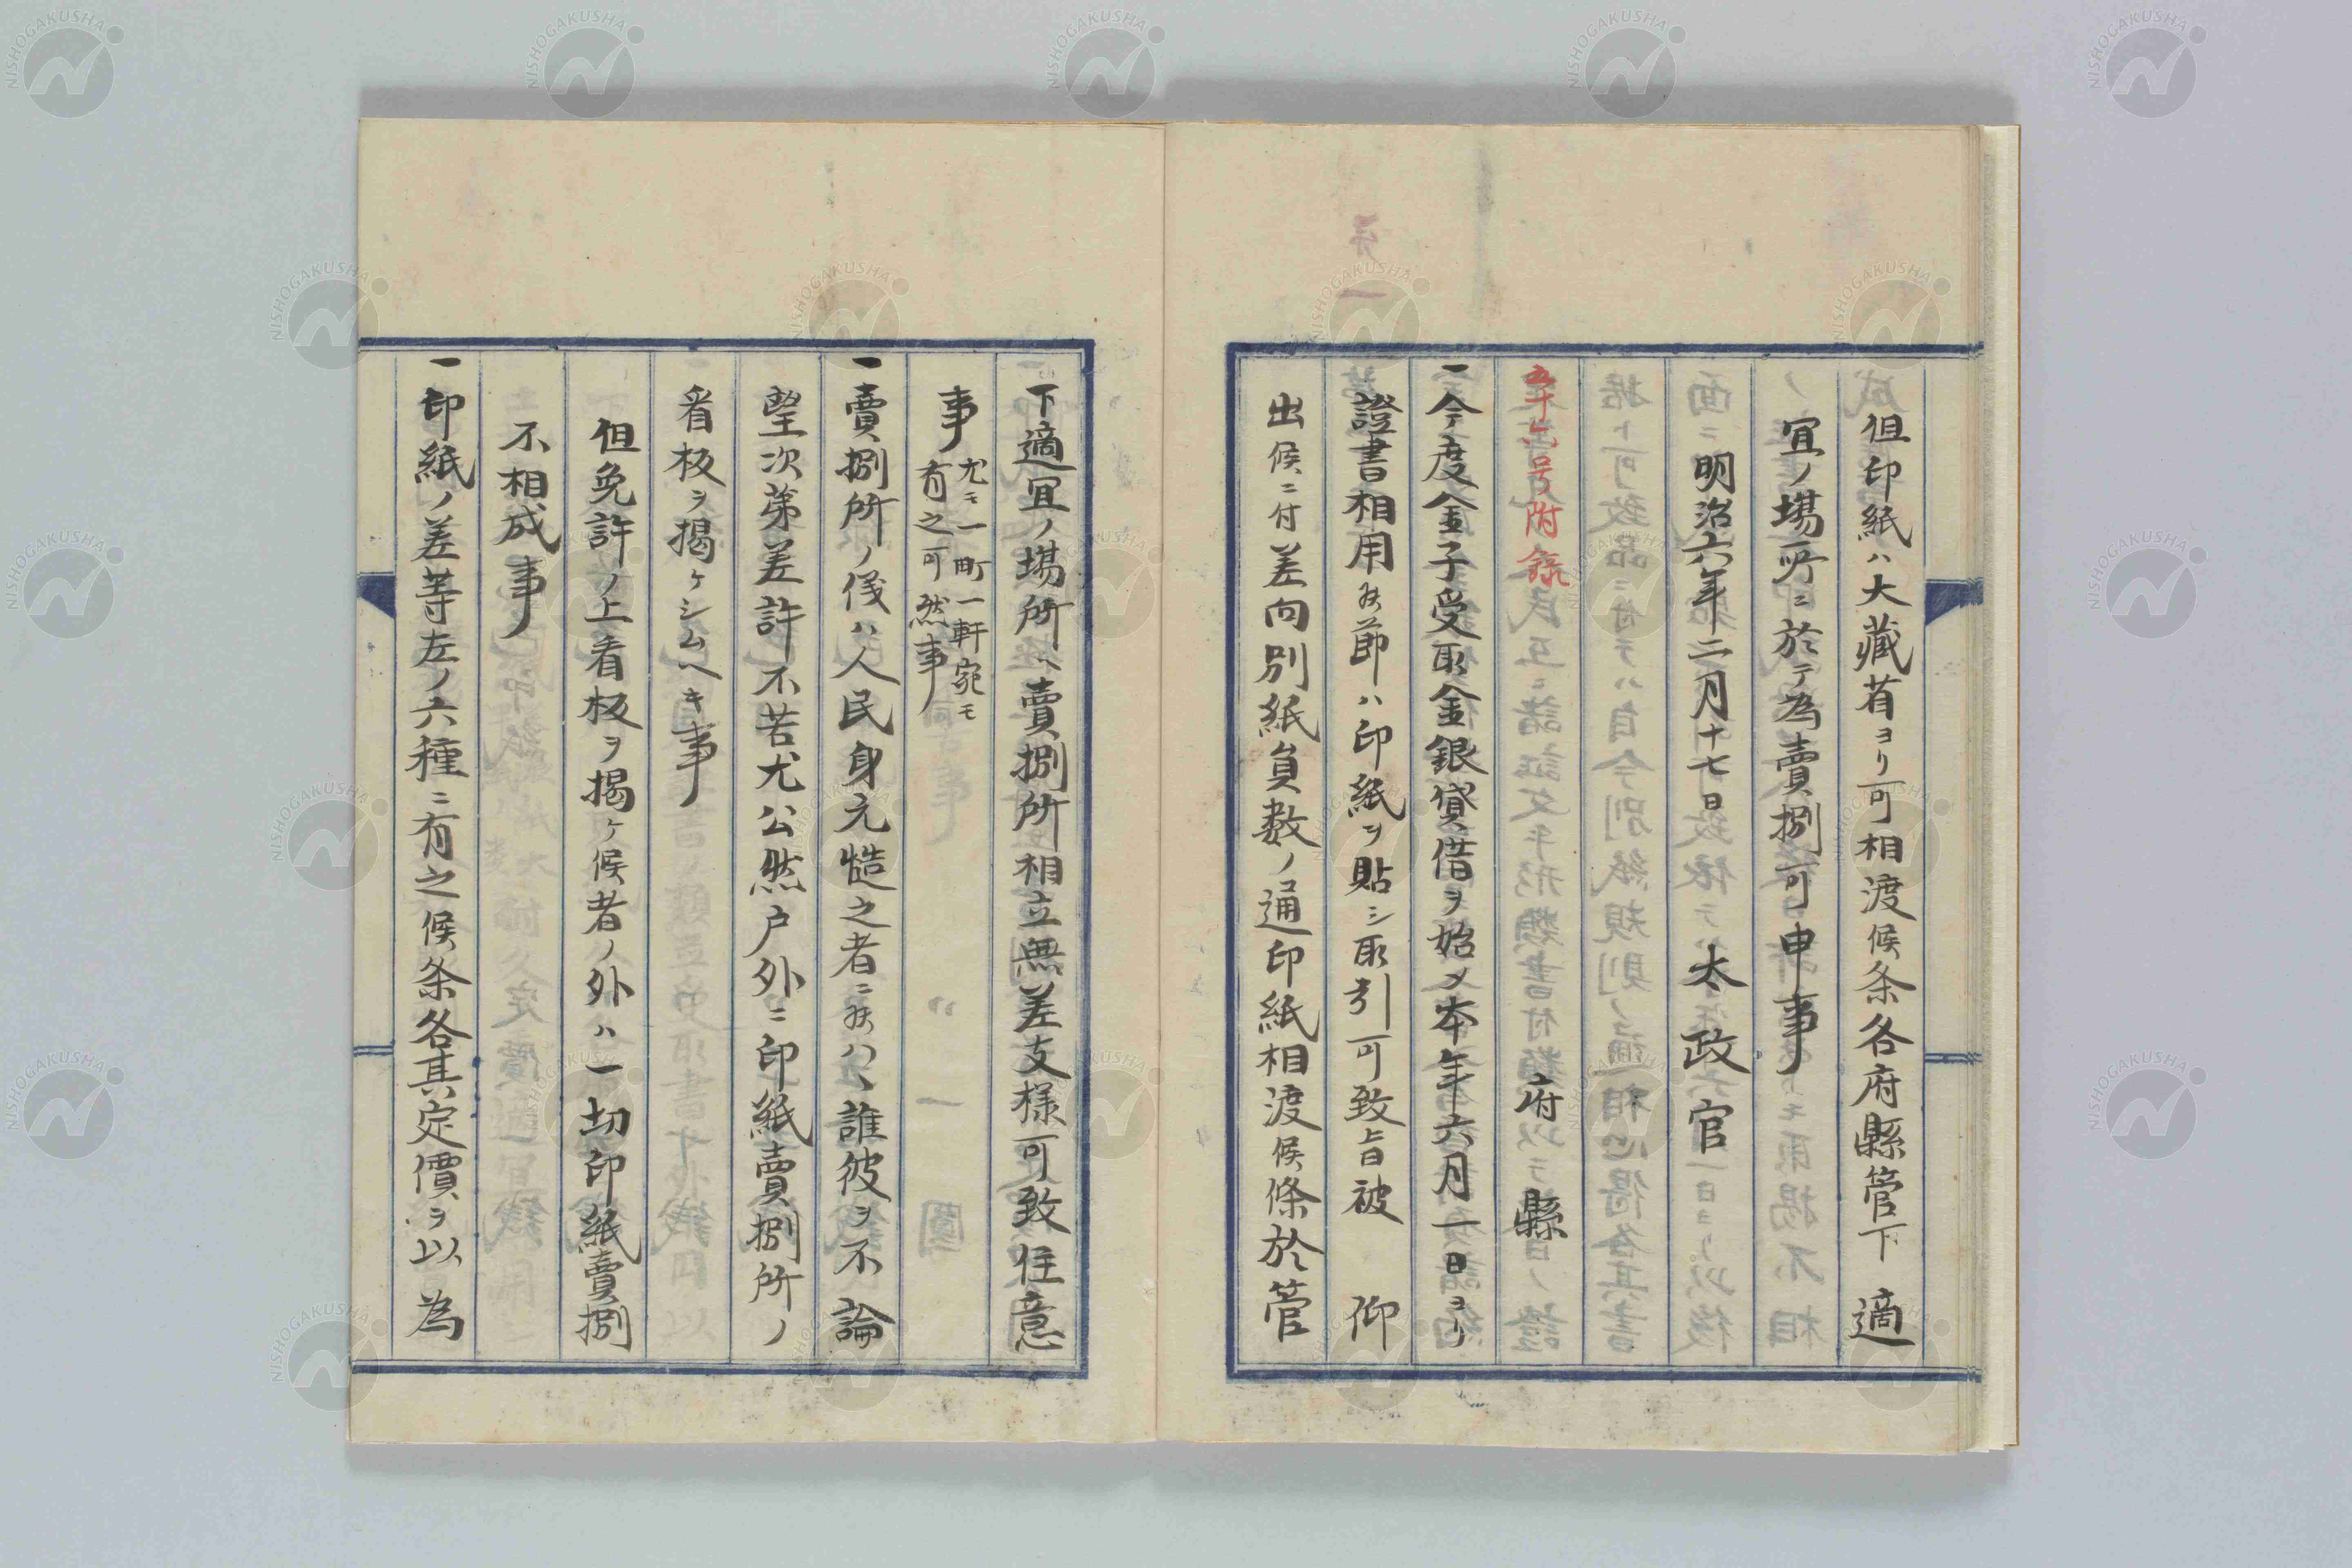 但印紙ハ大藏省ヨリ可相渡候条各府縣管下適
宜ノ場所ニ於テ為賣捌可申事
明治六年二月十七日 太政官
五十六号附録 府縣
一今度金子受取金銀貸借ヲ始メ本年六月一日ヨリ
證書相用候節ハ印紙ヲ貼シ取引可致旨被 仰
出候ニ付差向別紙員数ノ通印紙相渡候條於管
下適宜ノ場所ヘ賣捌所相立無差支様可致注意
事
尤モ一町一軒宛モ
有之可然事
一賣捌所ノ儀ハ人民身元慥之者ニ候ハヽ誰彼ヲ不論
望次第差許不苦尤公然户外ニ印紙賣捌所ノ
看板ヲ掲ケシムヘキ事
但免許ノ上看板ヲ掲ケ候者ノ外ハ一切印紙賣捌
不相成事
一印紙ノ差等左ノ六種ニ有之候条各其定價ヲ以為
NISHOGAKUSHA